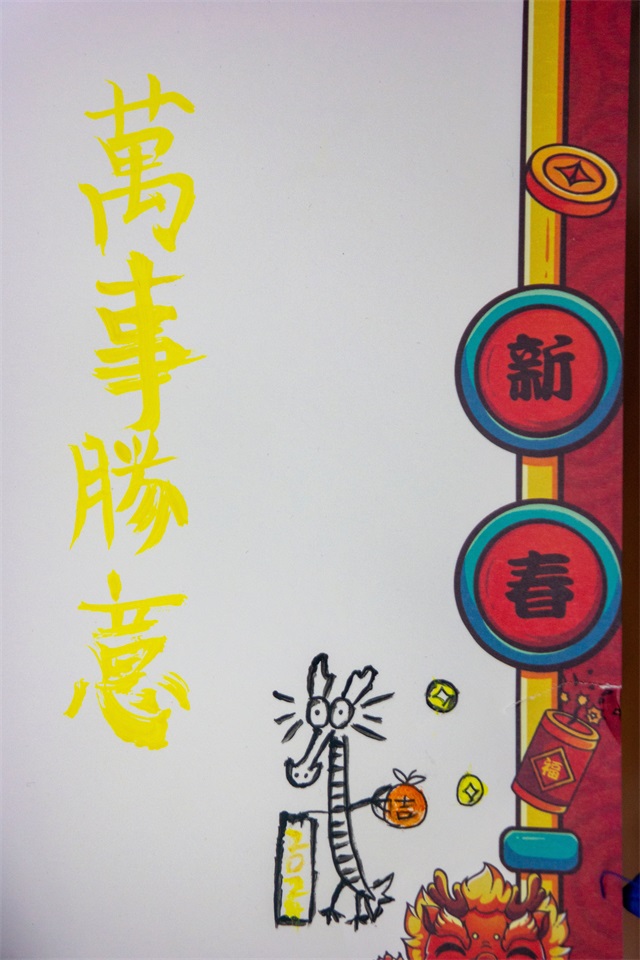 萬事勝意
新春
福
吉
2024